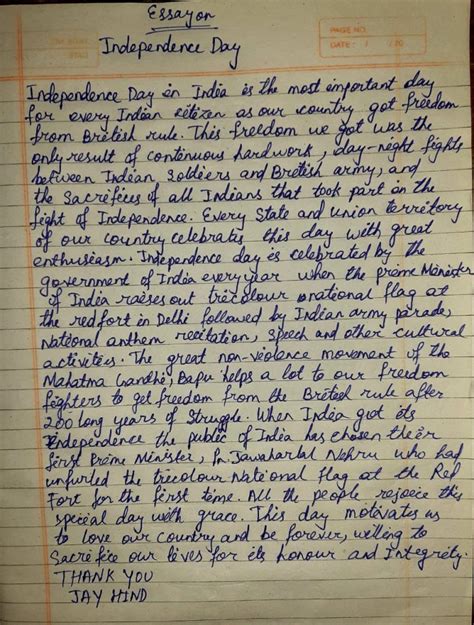 Essay on
Independence Day
PAGE NO.
DATE: / /20
Independence Day in India is the most important day
for every Indian citizen as our country got freedom
from British rule. This freedom we got was the
only result of continuous hardwork, day-night fights
between Indian Soldiers and British army, and
the Sacrifices of all Indians that took part in the
fight of Independence. Every State and union territory
of our country celebrates this day with great
enthusiasm. Independence day is celebrated by the
government of India every year when the prime Minister
of India raises out tricolour national flag at
the redfort in Delhi followed by Indian army parade,
National anthem recitation, Speech and other cultural
activities. The great non-violence movement of the
Mahatma Gandhi, Bapu helps a lot to our freedom
fighters to get freedom from the British rule after
200 long years of Struggle. When India got its
Independence the public of India has chosen their
first Prime Minister, Jawaharlal Nehru who had
unfurled the tricolour National flag at the Red
Fort for the first time. All the people rejoice this
special day with grace. This day motivates us
to love our country and be forever, willing to
Sacrifice our lives for its honour and Integrity.
THANK YOU
JAY HIND